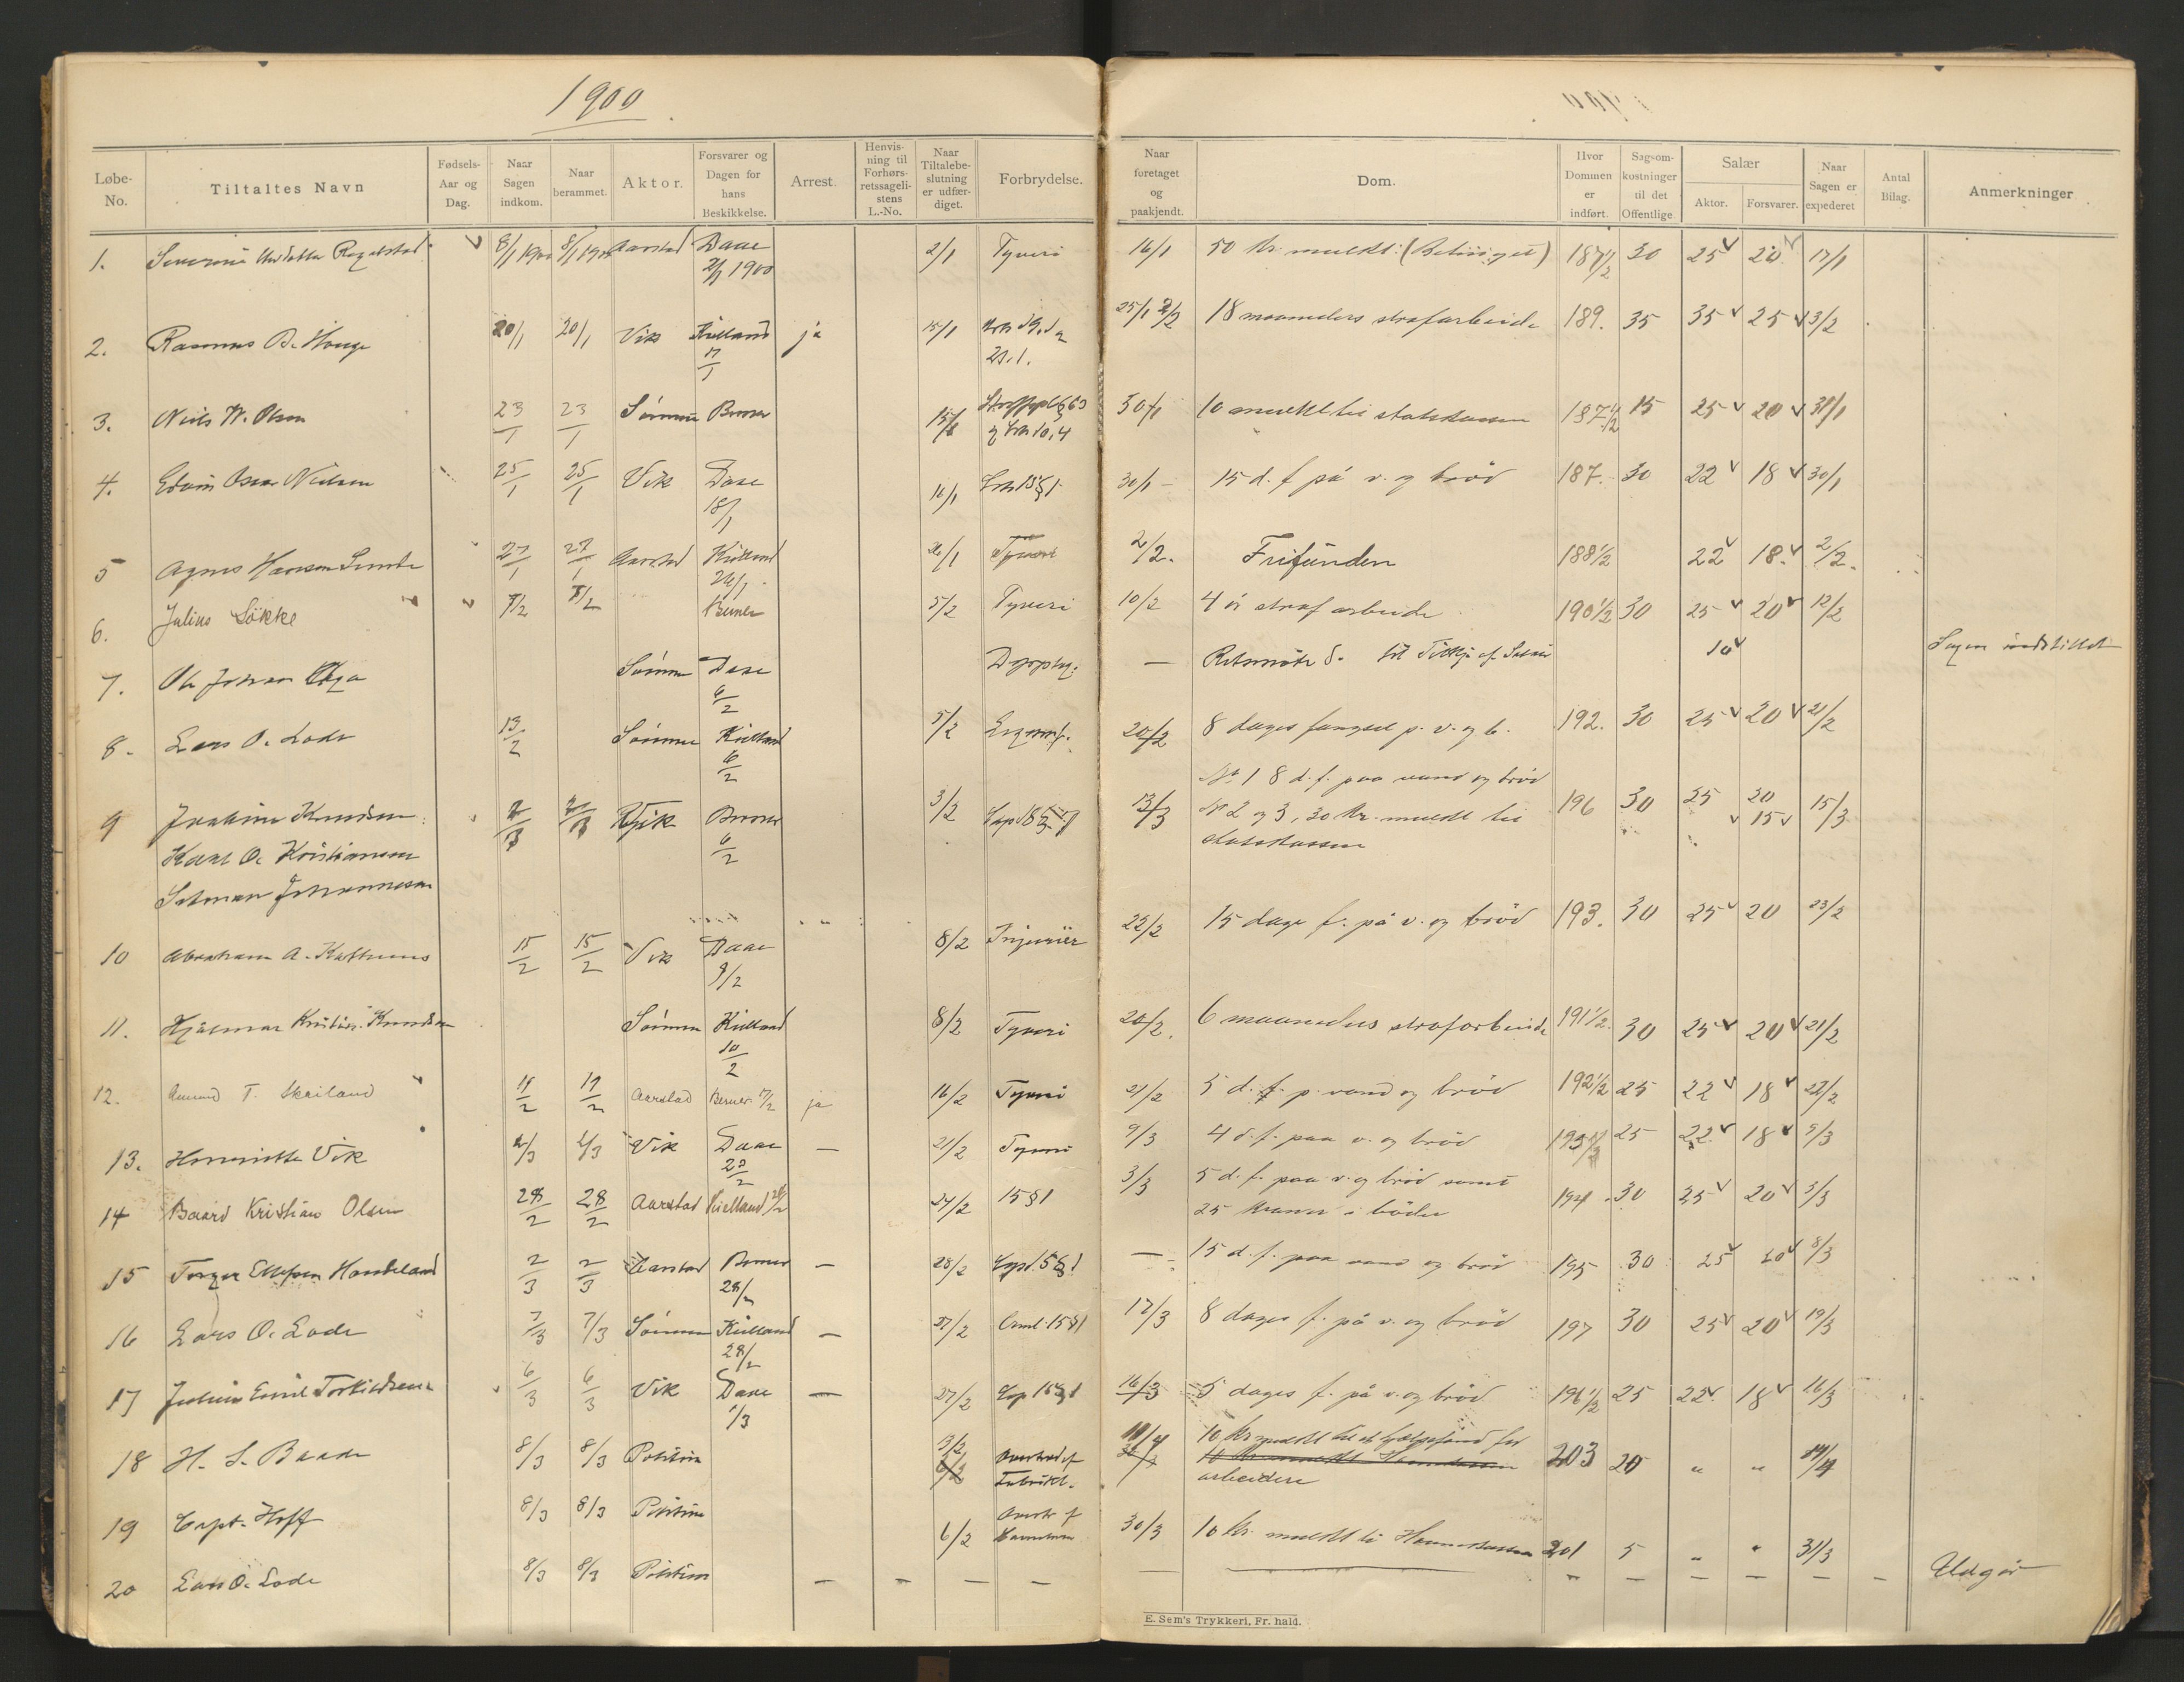 1900
Løbe-No. Tiltaltes Navn Fødsels-Aar og Dag. Naar Sagen indkom. Naar berammet. Aktor. Forsvarer og Dagen for hans Beskikkelse. Arrest. Henvisning til Forhørsretssagelistens L.-No. Naar Tiltalebeslutning er udfærdiget. Forbrydelse. Naar foretaget og paakjendt. Dom. Hvor Dommen er indført. Sagsomkostninger til det Offentlige Salær Aktor. Forsvarer. Naar Sagen er expederet Antal Bilag. Anmerkninger
1. Severine 8/1 1900 8/1 1900 Aarstad Daae 2/1 1900 2/1 Tyveri 16/1 50 kr. mulkt. (Betinget) 187 1/2 30 25 20 17/1
2. Rasmus B. Hauge 20/1 20/1 Vik Kielland 17/1 ja 15/1 25/1 2/2 18 maaneders strafarbeide 189. 35 35 25 3/2
3. Niels W. Olsen 23/1 23/1 Sömme Berner 30/1 10 mulkt til statskassen 187 1/2 15 25 20 31/1
4. Edvin Oscar Nielsen 25/1 25/1 Vik Daae 18/1 16/1 30/1 15 d. f. på v. og bröd 187. 30 22 18 30/1
5 Agnes Hansen 27/1 27/1 Aarstad Kielland 26/1 26/1 Tyveri 2/2. Frifunden 188 1/2 22 18. 2/2.
6. Julius Lökke 8/2 8/2 Berner 5/2 Tyveri 10/2 4 år strafarbeide 190 1/2 30 25 20 12/2
7. Ole Johan Sömme Daae 6/2 — Retsmöte 10 Sagen indstillet
8. Lars O. Lode 13/2 Sömme Kielland 6/2 5/2 20/2 8 dages fængsel p. v. og b. 192. 30 25 20 21/2
9 Joakim Knudsen Vik Berner 6/2 3/2 13/3 No 1 8 d. f. paa vand og bröd 196 30 25 20 15 15/3
Karl O. Kristiansen No 2 og 3, 30 kr. mulkt til
Salomon Johannesen statskassen
10 Abraham A. 15/2 15/2 Vik Daae 9/2 8/2 Injurier 22/2 15 dage f. på v. og bröd 193. 30 25 20 23/2
11. Hjalmar Kristian Knudsen Sömme Kielland 10/2 8/2 Tyveri 20/2. 6 maaneders strafarbeide 191 1/2. 30 25 20 21/2
12. Amund T. Skeiland 19/2 19/2 Aarstad Berner 17/2 ja 16/2 Tyveri 21/2 5 d. f. p. vand og bröd 192 1/2 25 22 18 22/2
13. Henriette Vik 2/3 2/3 Vik Daae 23/2 — 21/2 Tyveri 9/3 4 d. f. paa v. og bröd 25 22 18 5/3
14 Baard Kristian Olsen 28/2 28/2 Aarstad Kielland 24/2 15 § 1 3/3 5 d. f. paa v. og bröd samt 194 30 25 20 5/3
25 kroner i böder
15 Torger Ellefsen Haabeland 2/3 2/3 Aarstad Berner 28/2 — 28/2 — 15 d. f. paa vand og bröd 195 30 25 20 8/3
16 Lars O. Lode 7/3 7/3 Sömme Kielland 28/2 — 27/2 15 § 1 17/3 8 dages f. på v. og bröd 197 30 25 20 19/3
17 Julius Emil Torkildsen 6/3 6/3 Vik Daae 1/3 — 27/2 16/3 5 dages f. på v. og bröd 196 1/2 25 22 18 16/3
18 H. S. Baade 8/3 8/3 Politim 10 kr mulkt 203 20 „ „
arbeidere
19 Capt. Hoff 8/3 8/3 Politim 6/2 30/3 10 kr. mulkt til Havnekassen 201 5 „ „ 31/3
20 Lars O. Lode 8/3 8/3 Politim — — — — — — — — — — — — Udgår
E. Sem's Trykkeri, Fr. hald.